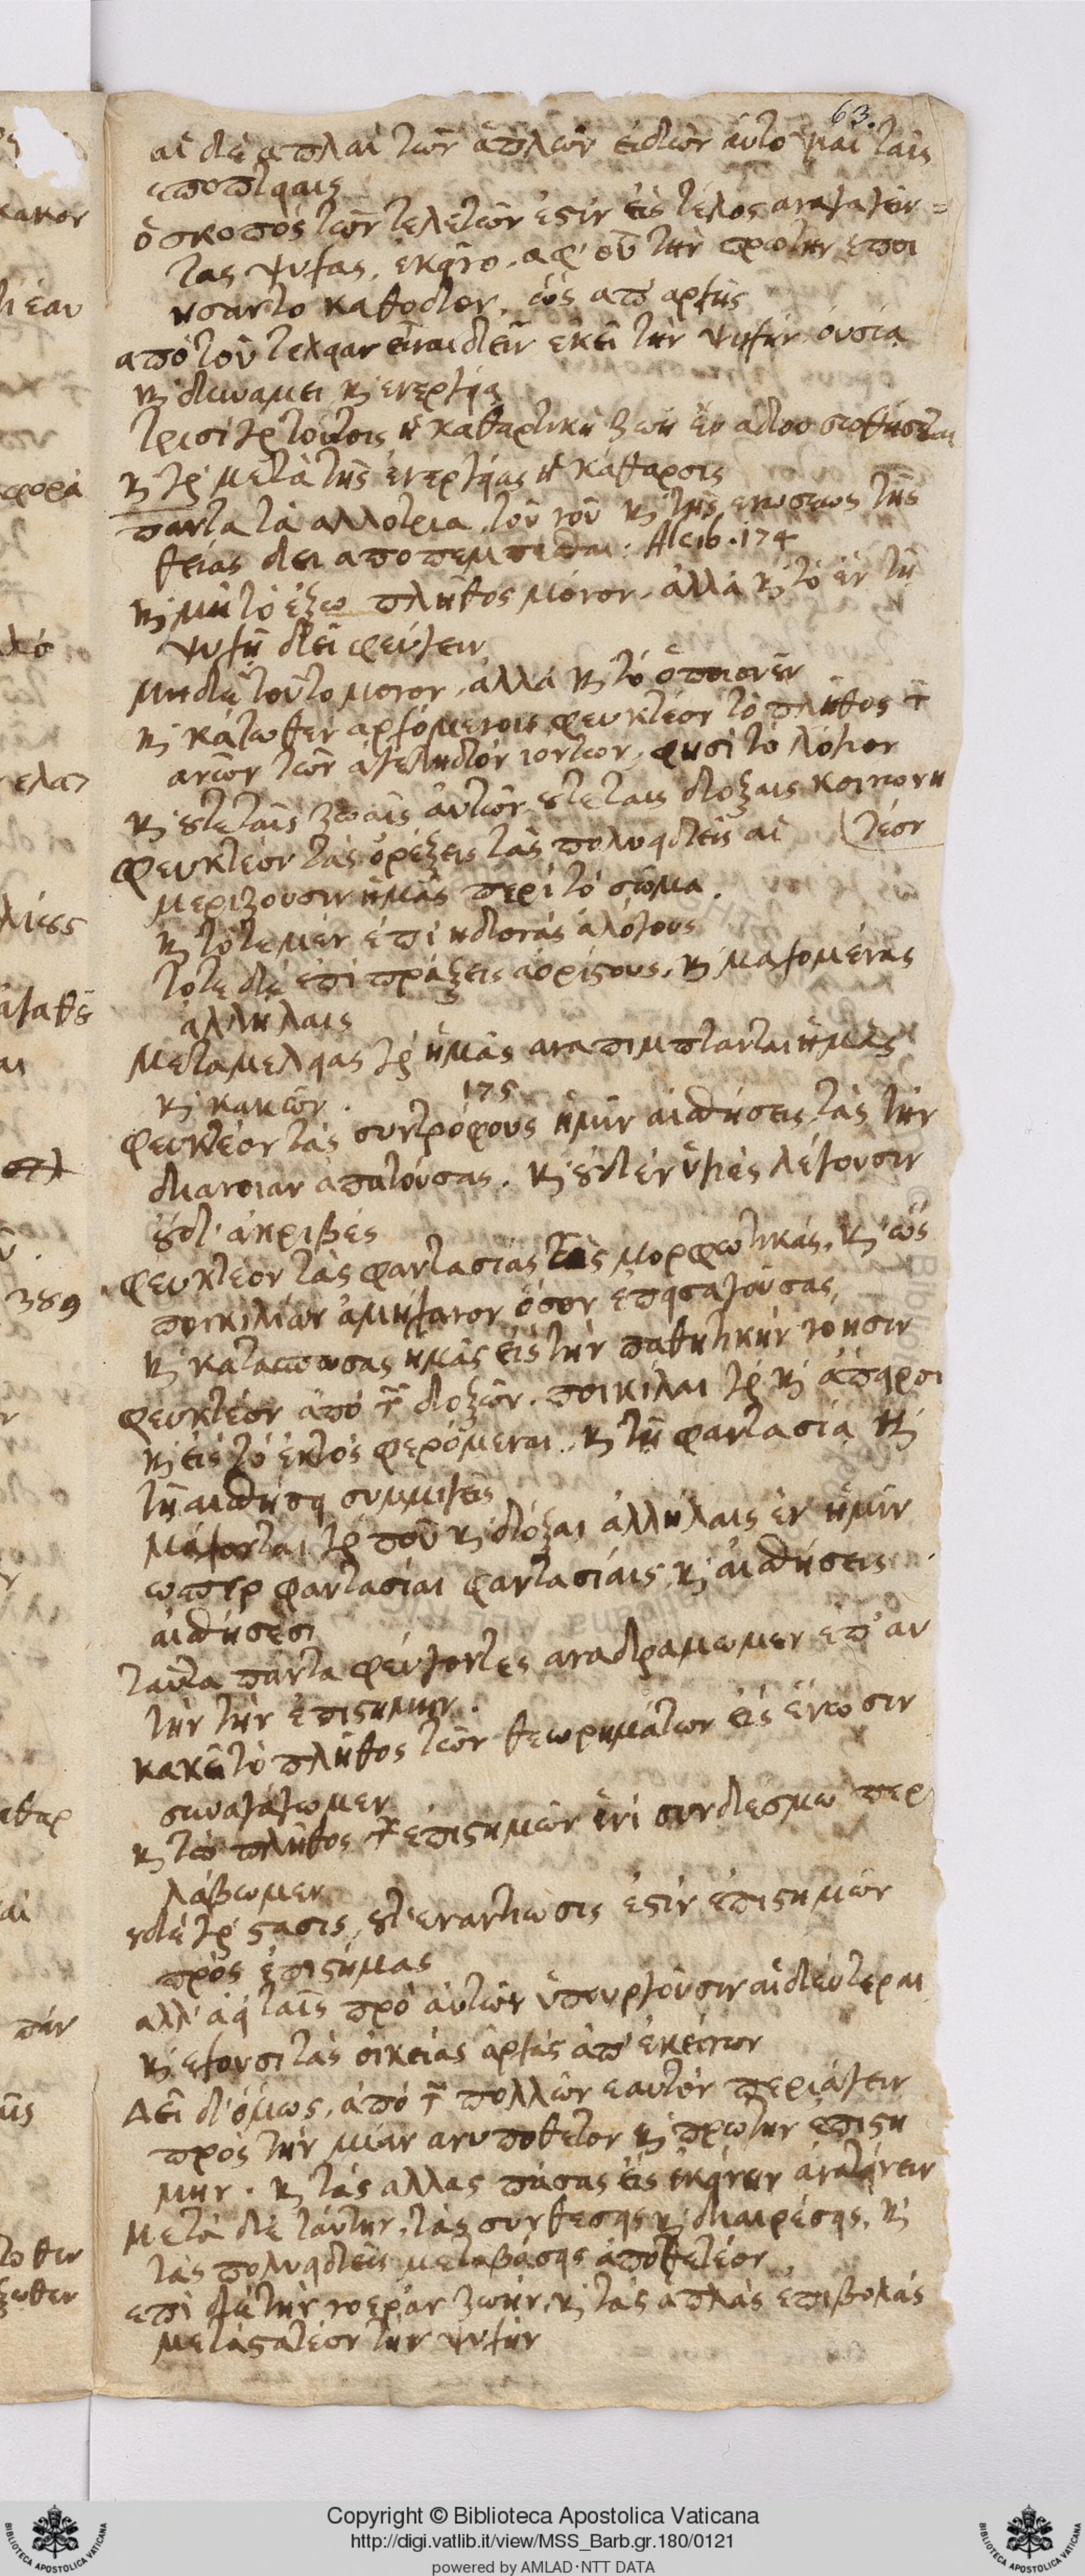 63.
αἱ δὲ απλαὶ τῶν ἁπλῶν ειδῶν αυτο
ὁ σκοπὸς τῶν τελετῶν ἐστιν εἰς τέλος αναγαγεῖν
τας ψυχας, ἐκεῖνο, αφ' οὗ τὴν πρωτην εποι
ησαντο καθοδον, ὡς απ' αρχῆς
εἶναι δεῖν ἐκεῖ τὴν ψυχὴν ουσία
κ δυναμει κ ενεργεία
τρισὶ γὰρ τούτοις ἡ καθαρτικὴ ζωὴ
κ γὰρ μετὰ τῆς ἐνεργείας ἡ κάθαρσις
παντα τὰ αλλοτρια τοῦ νοῦ κ τῆς ενωσεως τῆς
θείας δει αποπεμπεσθαι: Alcib. 174
κ μὴ τὸ έξω πλῆθος μόνον, ἀλλὰ κ τὸ ἐν τῆ
ψυχῆ δεῖ φεύγειν
μηδὲ τοῦτο μονον, αλλὰ κ τὸ ὁποιονοῦν
κ κάτωθεν αρχόμενοις φευκτέον τὸ πλῆθος τ
ανων τῶν ἀγεληδὸν ιοντων, φησὶ τὸ λόγιον
κ ουτε ταῖς ζωαῖς αυτῶν ουτε ταις δοξαις κοινωνη
τέον
φευκτέον τὰς ὀρέξεις τὰς πολυειδεῖς αἳ
μεριζουσιν ημᾶς περὶ τὸ σῶμα.
κ τότε μὲν ἐπὶ ηδονὰς ἀλόγους
τοτε δὲ επὶ πράξεις αορίστους, κ μαχομένας
ἀλλήλαις
μεταμελειας γὰρ ἡμᾶς αναπιμπλανται ἡμᾶς
κ κακῶν. 175
φευκτέον τὰς συντρόφους ἡμῖν αισθήσεις τὰς τὴν
διανοιαν απατούσας. κ ουδὲν ὑγιὲς λέγουσιν
ουδ' ακριβὲς
φευκτέον τὰς φαντασίας τὰς μορφωτικάς, κ ὡς
ποικιλίαν ἀμήχανον ὅσον επεισαγούσας
κ κατασπωσας ημᾶς εἰς τὴν παθητικὴν νοησιν
φευκτέον ἀπὸ τ δοξῶν. ποικίλαι γὰρ κ άπειροι
κ εἰς τὸ ἐκτὸς φερόμεναι, κ τῆ φαντασία κ
τῆ αισθήσει συμμιγεῖς
μάχονται γὰρ που κ δόξαι ἀλλήλαις ἐν ἡμῖν
ωσπερ φαντασίαι φαντασίαις, κ αισθήσεις
αισθήσεσι
ταῦτα πάντα φεύγοντες αναδραμωμεν ἐπ' αυ
τὴν τὴν ἐπιστημην.
κακεῖ τὸ πλῆθος τῶν θεωρημάτων εἰς ἕνωσιν
συναγάγωμεν
κ τὸ πλῆθος τ ἐπιστημῶν ἑνὶ συνδέσμω περι
λάβωμεν
ουδὲ γὰρ στασις, ουδ' εναντιωσις ἐστὶν ἐπιστημῶν
πρὸς ἐπιστήμας
αλλ' αεὶ ταῖς πρὸ αὐτῶν ὑπουργοῦσιν αἱ δεύτεραι
κ εχουσι τὰς οικείας ἀρχὰς ἀπ' ἐκείνων
Δεῖ δ' όμως, ἀπὸ τ πολλῶν εαυτὸν περιάγειν
πρὸς τὴν μίαν ανυποθετον κ πρώτην ἐπιστη
μην. κ τὰς αλλας πάσας εἰς ἐκείνην ἀνατείνειν
μετὰ δὲ ταύτην, τὰς συνθεσεις κ διαιρέσεις, κ
τὰς πολυειδεῖς μεταβάσεις ἀποθετέον
επὶ δὲ τὴν νοερὰν ζωὴν, κ τὰς ἁπλᾶς ἐπιβολὰς
μεταστατέον την ψυχὴν
389
Copyright © Biblioteca Apostolica Vaticana
http://digi.vatlib.it/view/MSS_Barb.gr.180/0121
powered by AMLAD·NTT DATA